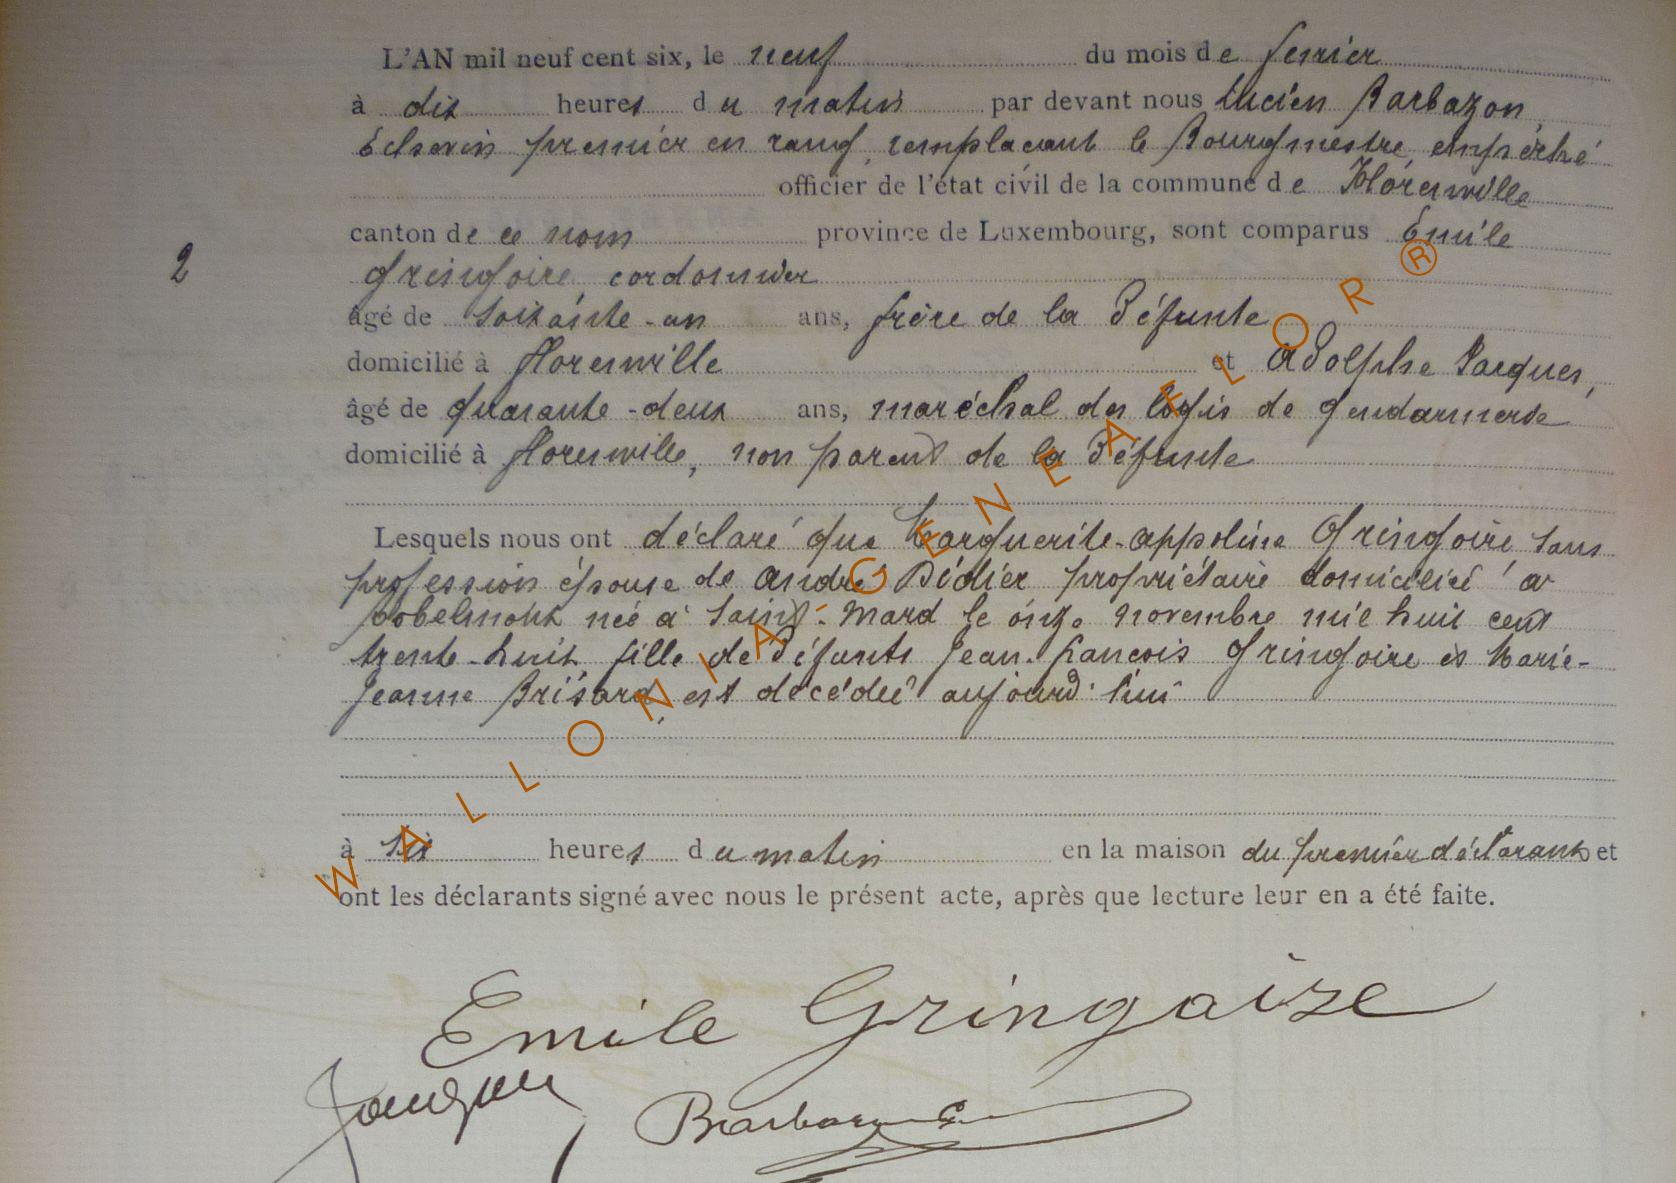 L'AN mil neuf cent six, le neuf du mois de fevrier
à dix heures du matin par devant nous Lucien Barbazon,
Echevin premier en rang, remplaçant le Bourgmestre empêché
officier de l'état civil de la commune de Florenville
canton de ce nom province de Luxembourg, sont comparus Emile
2
Gringoire, cordonnier
âgé de soixante-un ans, frère de la Défunte
domicilié à Florenville et Adolphe Jacques,
âgé de quarante-deux ans, maréchal des logis de gendarmerie
domicilié à Florenville, non parent de la Défunte
Lesquels nous ont déclaré que Marguerite-Appoline Gringoire sans
profession épouse de André Didier propriétaire domiciliée à
née à Saint-Mard le onze novembre mil huit cent
trente-huit fille de Défunts Jean-François Gringoire et Marie-
Jeanne Brisard, est décédée aujourd'hui
à six heures du matin en la maison du premier déclarant et
ont les déclarants signé avec nous le présent acte, après que lecture leur en a été faite.
Emile Gringoire
Jacques
Barbazon
WALLONIA-GENEAFLOR®